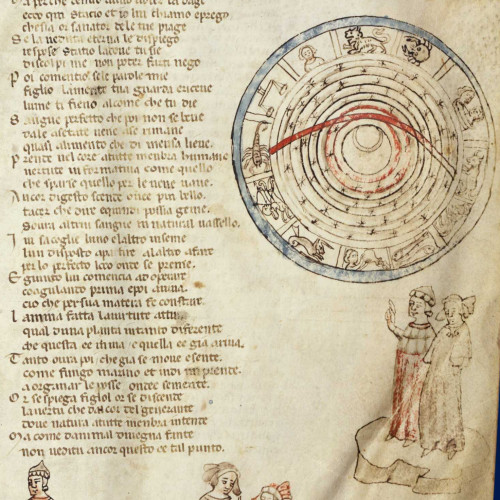 ecco qui Stacio et io lui chiamo e prego
che sia or sanator de le tue piage
Se la veduta eterna le dispiego
rispose Statio laove tu sie
discolpi me non poter farti nego
Poi comentio se le parole mie
figlio la mente tua guarda e riceue
lume ti fieno al come che tu die
Sangue perfecto che poi non se beue
quasi alimento che di mensa lieue
Prende nel core a tutte membra humane
vertute informatiua come quello
che sparse quello per le uene uane
Ancor digesto scende ou e piu bello
tacer che dire e quindi possia geme
Soura altrui sangue in natural uasello
Iui sacoglie luno e laltro inseme
lun disposto a patire e laltro a fare
per lo perfecto loco onde se preme
coagulando prima e poi auiua
cio che per sua matera fe constare
Lanima fatta la uirtute attiua
qual duna pianta in tanto differente
che questa e in uia e quella e gia a riua
Tanto oura poi che gia se moue e sente
come fungo marino et indi imprende
a organar le posse onde e semente
Or se spiega figliol or se distende
la uertu che dal cor del generante
doue natura a tutte membra intende
Ma come danimal diuegna fante
non uedi tu ancor questo e tal punto